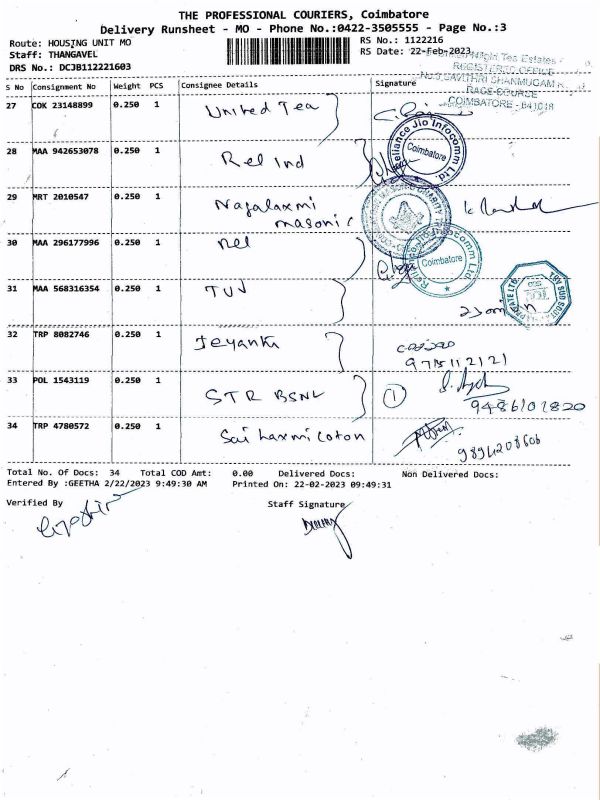 THE PROFESSIONAL COURIERS, Coimbatore
Delivery Runsheet - MO - Phone No.:0422-3505555 - Page No.:3
Route: HOUSING UNIT MO RS No.: 1122216
Staff: THANGAVEL RS Date: 22-Feb-2023
DRS No.: DCJB112221603
Tea Estates
REGISTERED OFFICE
No.9, SAVITHRI SHANMUGAM
RACE COURSE
COIMBATORE - 641018
S No Consignment No Weight PCS Consignee Details Signature
27 COK 23148899 0.250 1 United Tea
28 MAA 942653078 0.250 1 Rel Ind
Reliance Jio Infocomm Ltd. Coimbatore
29 MRT 2010547 0.250 1 Nagalaxmi
masonic
30 MAA 296177996 0.250 1 Rel
Reliance Jio Infocomm Ltd Coimbatore
31 MAA 568316354 0.250 1 TUV
32 TRP 8082746 0.250 1
9715112121
33 POL 1543119 0.250 1 STR BSNL 1
9486101820
34 TRP 4780572 0.250 1 Sai Laxmi Coton
9894208606
Total No. Of Docs: 34 Total COD Amt: 0.00 Delivered Docs: Non Delivered Docs:
Entered By :GEETHA 2/22/2023 9:49:30 AM Printed On: 22-02-2023 09:49:31
Verified By Staff Signature